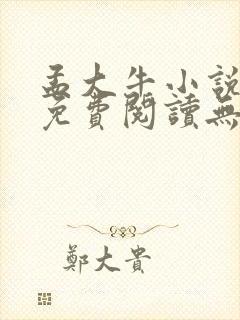 孟大牛小說
免費閱讀無
鄭大貴